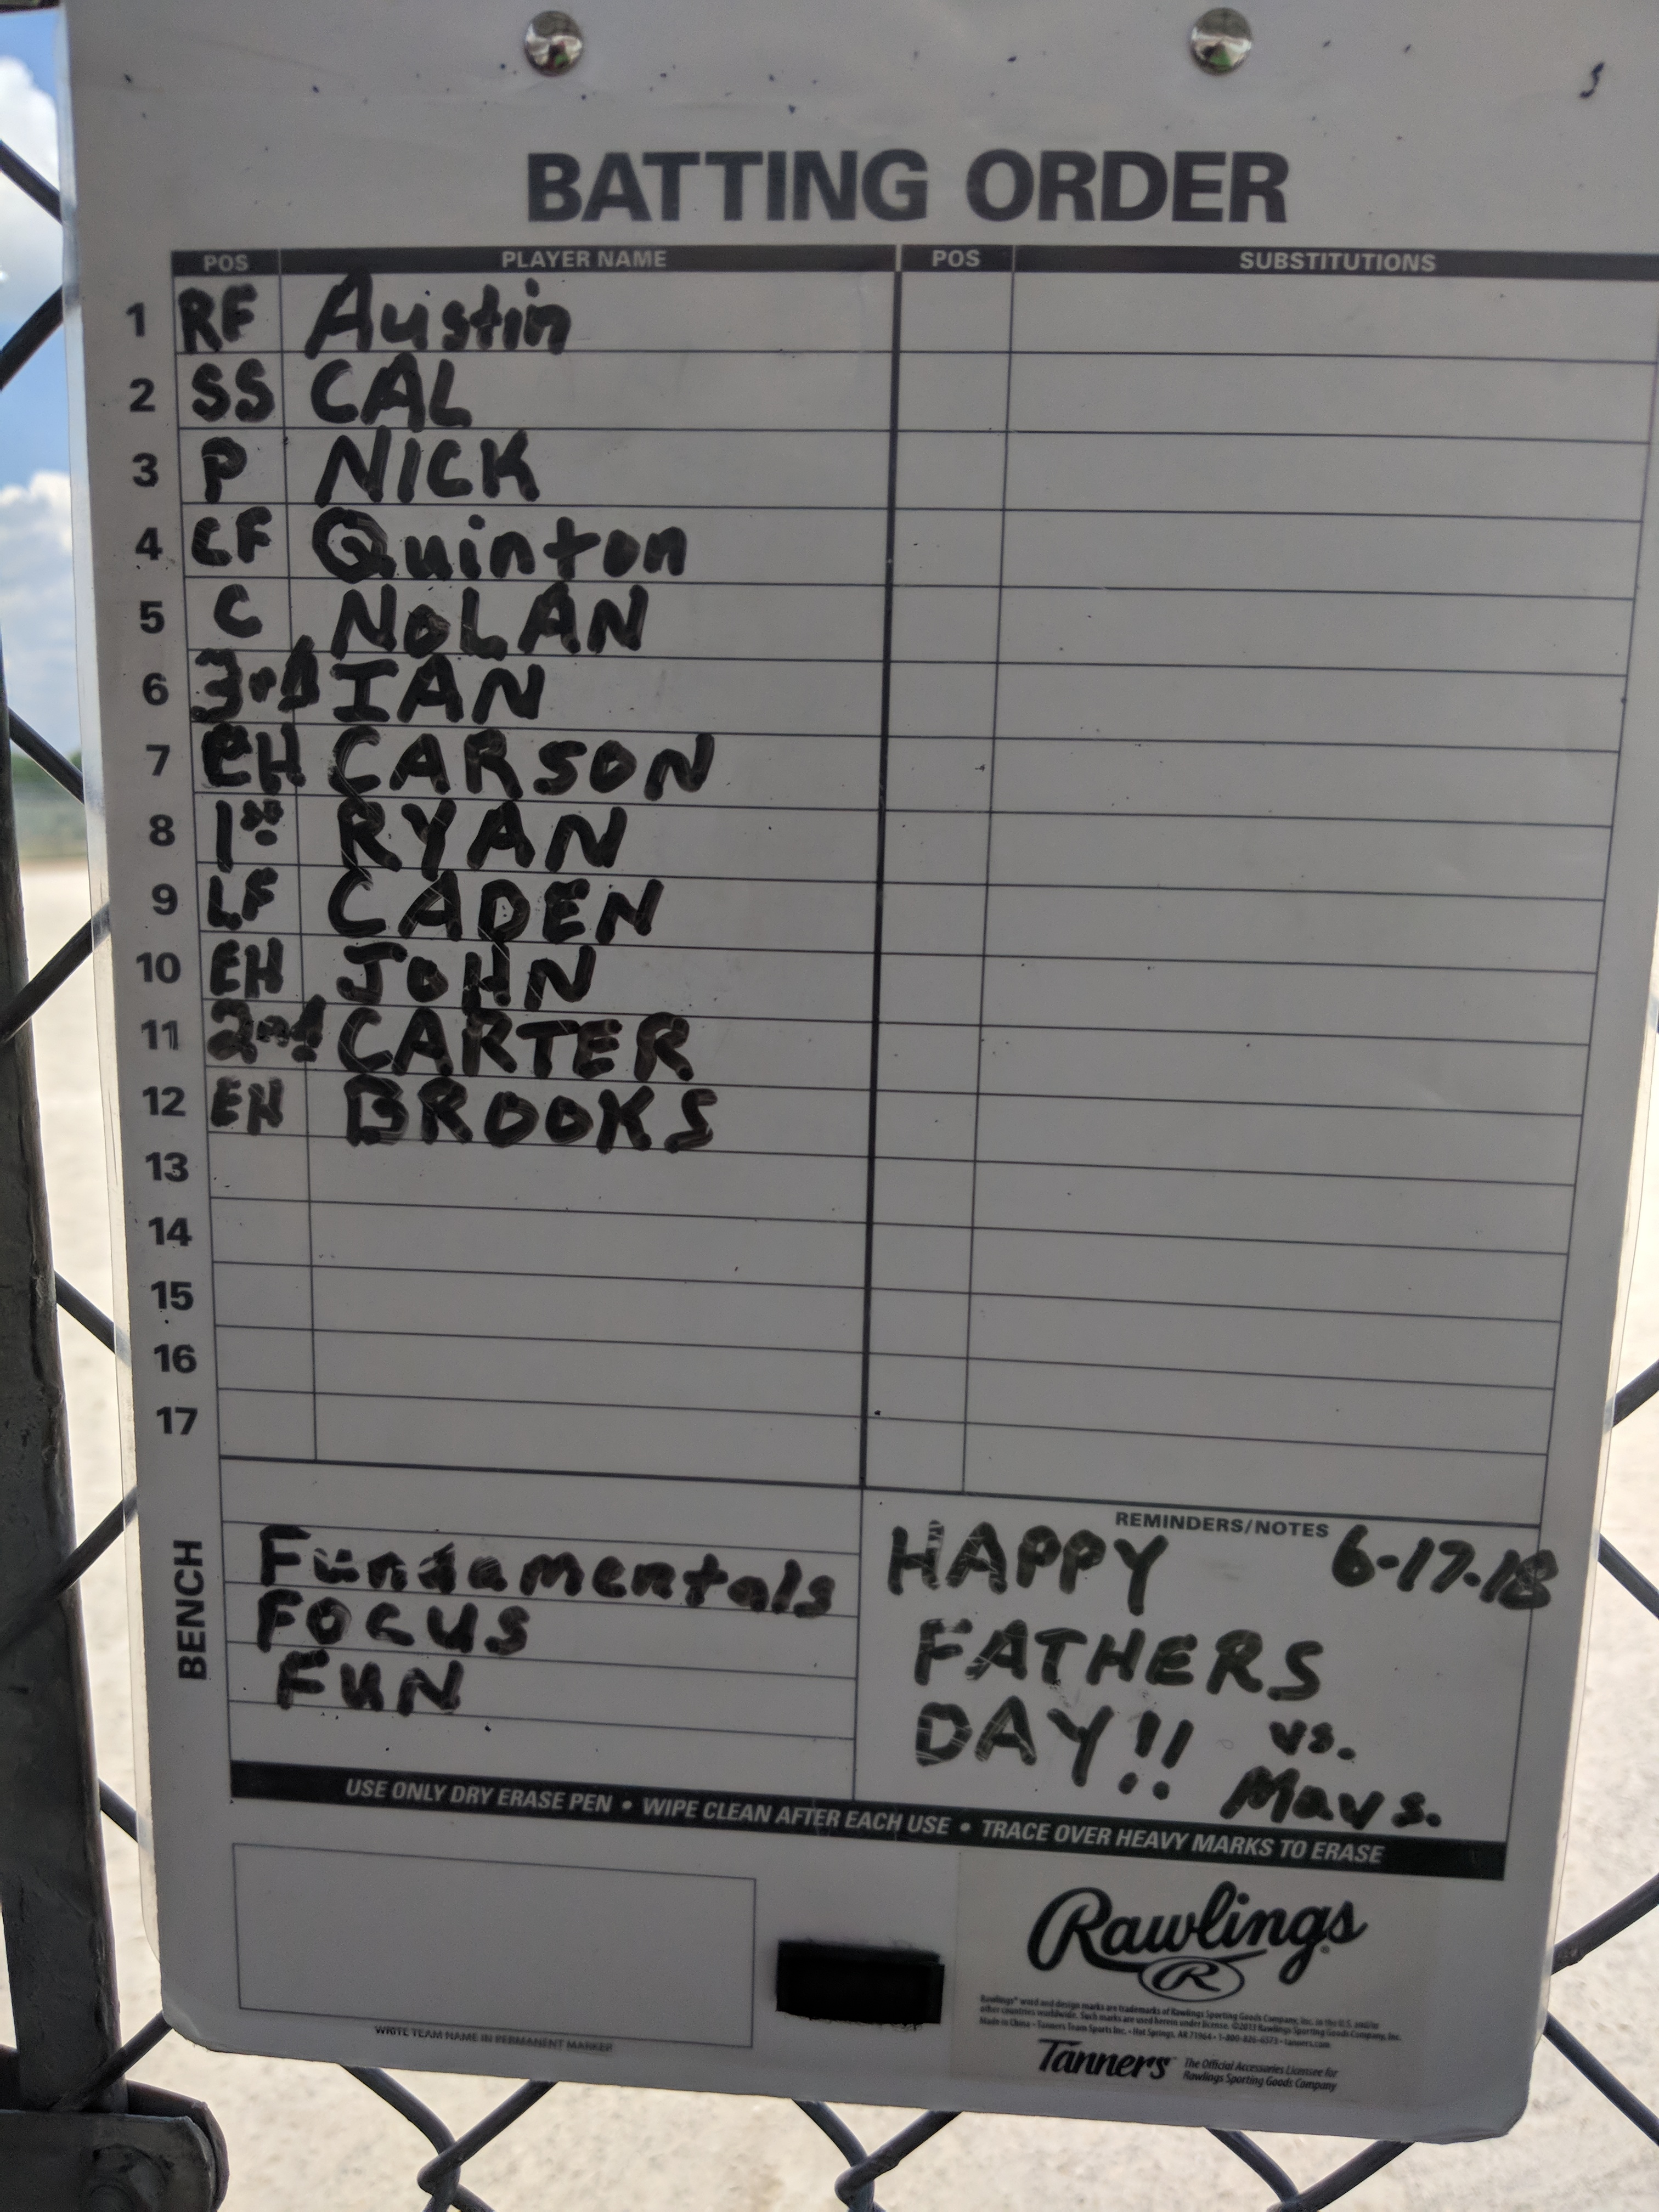 BATTING ORDER
POS PLAYER NAME POS SUBSTITUTIONS
1 RF Austin
2 SS CAL
3 P NICK
4 CF Quinton
5 C NOLAN
6 3rd IAN
7 eH CARSON
8 1st RYAN
9 LF CADEN
10 EH JOHN
11 2nd CARTER
12 EH BROOKS
13
14
15
16
17
BENCH
Fundamentals
FOCUS
FUN
REMINDERS/NOTES
HAPPY 6-17-18
FATHERS
DAY!! vs.
Mavs.
USE ONLY DRY ERASE PEN • WIPE CLEAN AFTER EACH USE • TRACE OVER HEAVY MARKS TO ERASE
WRITE TEAM NAME IN PERMANENT MARKER
Rawlings®
R
Rawlings® word and design marks are trademarks of Rawlings Sporting Goods Company, Inc. in the U.S. and/or
other countries worldwide. Such marks are used herein under license. ©2013 Rawlings Sporting Goods Company, Inc.
Made in China • Tanners Team Sports Inc. • Hot Springs, AR 71964 • 1-800-826-6573 • tanners.com
Tanners
The Official Accessories Licensee for
Rawlings Sporting Goods Company